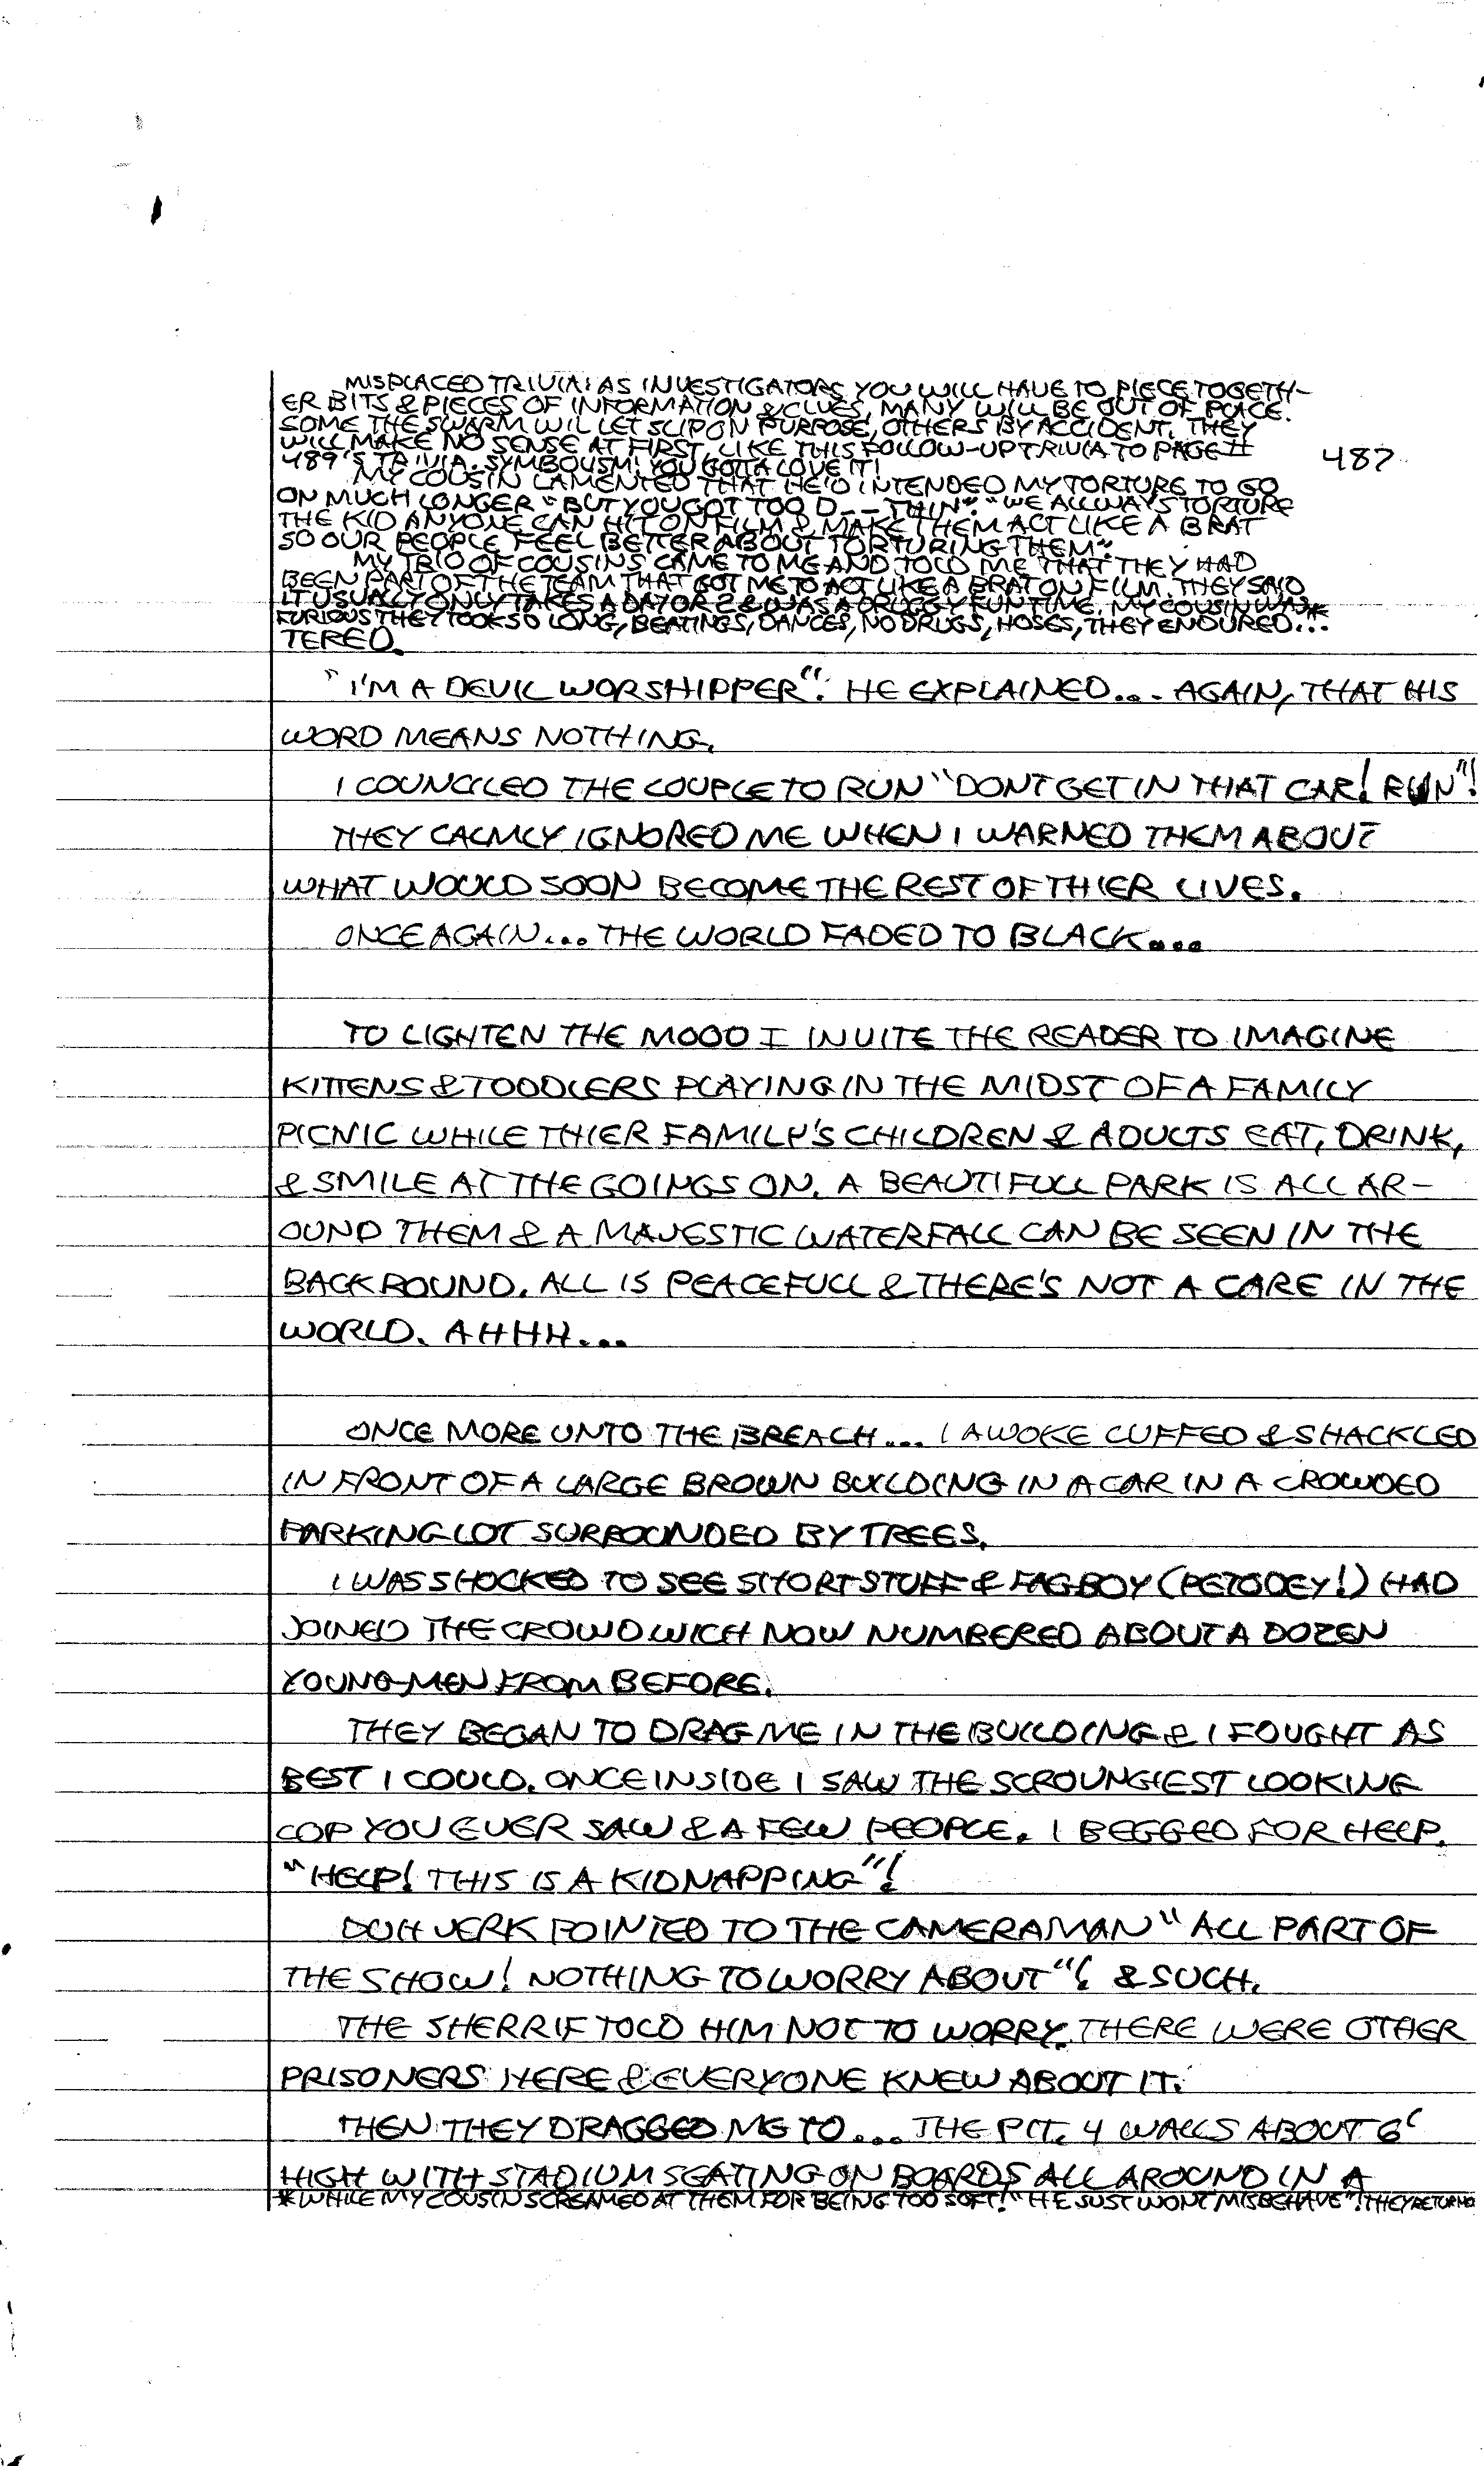 MISPLACED TRIVIA: AS INVESTIGATORS YOU WILL HAVE TO PIECE TOGETH-
ER BITS & PIECES OF INFORMATION & CLUES, MANY WILL BE OUT OF PLACE.
SOME THE SWARM WIL LET SLIP ON PURPOSE, OTHERS BY ACCIDENT. THEY
WILL MAKE NO SENSE AT FIRST, LIKE THIS FOLLOW-UP TRIVIA TO PAGE #
489'S TRIVIA. SYMBOLISM! YOU GOTTA LOVE IT!
487
MY COUSIN LAMENTED THAT HE'D INTENDED MY TORTURE TO GO
ON MUCH LONGER "BUT YOU GOT TOO D-- THIN". "WE ALLWAYS TORTURE
THE KID ANYONE CAN HIT ON FILM & MAKE THEM ACT LIKE A BRAT
SO OUR PEOPLE FEEL BETTER ABOUT TORTURING THEM".
MY TRIO OF COUSINS CAME TO ME AND TOLD ME THAT THEY HAD
BEEN PART OF THE TEAM THAT GOT ME TO ACT LIKE A BRAT ON FILM. THEY SAID
IT USUALLY ONLY TAKES A DAY OR 2 & WAS A DRUGGY FUN TIME. MY COUSIN WAS*
FURIOUS THEY TOOK SO LONG, BEATINGS, DANCES, NO DRUGS, HOSES, THEY ENDURED...
TERED.
"I'M A DEVIL WORSHIPPER". HE EXPLAINED... AGAIN, THAT HIS
WORD MEANS NOTHING.
I COUNCILED THE COUPLE TO RUN "DONT GET IN THAT CAR! RUN"!
THEY CALMLY IGNORED ME WHEN I WARNED THEM ABOUT
WHAT WOULD SOON BECOME THE REST OF THIER LIVES.
ONCE AGAIN... THE WORLD FADED TO BLACK...
TO LIGHTEN THE MOOD I INVITE THE READER TO IMAGINE
KITTENS & TODDLERS PLAYING IN THE MIDST OF A FAMILY
PICNIC WHILE THIER FAMILY'S CHILDREN & ADULTS EAT, DRINK,
& SMILE AT THE GOINGS ON. A BEAUTIFULL PARK IS ALL AR-
OUND THEM & A MAJESTIC WATERFALL CAN BE SEEN IN THE
BACKROUND. ALL IS PEACEFULL & THERE'S NOT A CARE IN THE
WORLD. AHHH...
ONCE MORE UNTO THE BREACH... I AWOKE CUFFED & SHACKLED
IN FRONT OF A LARGE BROWN BUILDING IN A CAR IN A CROWDED
PARKING LOT SURROUNDED BY TREES.
I WAS SHOCKED TO SEE SHORTSTUFF & FAGBOY (PETODEY!) HAD
JOINED THE CROWD WICH NOW NUMBERED ABOUT A DOZEN
YOUNG MEN FROM BEFORE.
THEY BEGAN TO DRAG ME IN THE BUILDING & I FOUGHT AS
BEST I COULD. ONCE INSIDE I SAW THE SCROUNGIEST LOOKING
COP YOU EVER SAW & A FEW PEOPLE. I BEGGED FOR HELP.
"HELP! THIS IS A KIDNAPPING"!
DUH JERK POINTED TO THE CAMERAMAN "ALL PART OF
THE SHOW! NOTHING TO WORRY ABOUT"! & SUCH.
THE SHERRIF TOLD HIM NOT TO WORRY. THERE WERE OTHER
PRISONERS HERE & EVERYONE KNEW ABOUT IT.
THEN THEY DRAGGED ME TO... THE PIT. 4 WALLS ABOUT 6'
HIGH WITH STADIUM SEATING ON BOARDS ALL AROUND IN A
*WHILE MY COUSIN SCREAMED AT THEM FOR BEING TOO SOFT! "HE JUST WONT MISBEHAVE"! THEY RETURNED